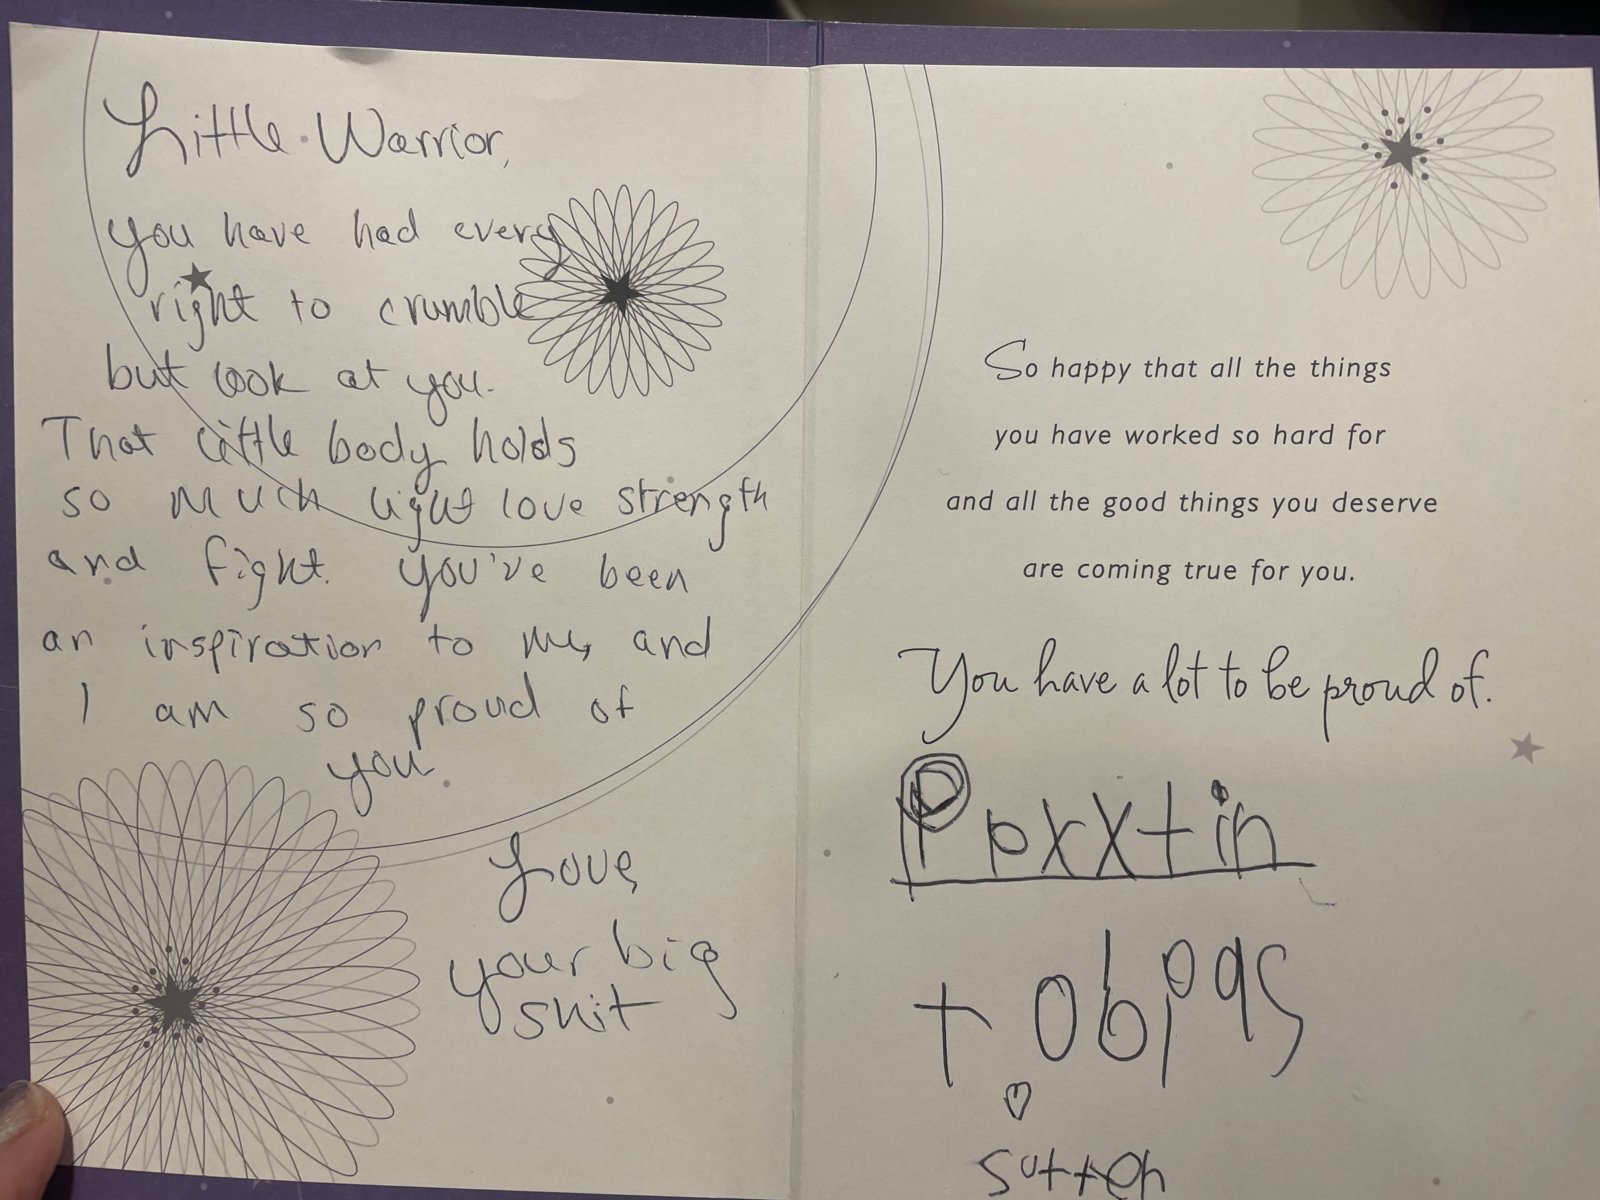 Little Warrior,
you have had every
right to crumble
but look at you.
That little body holds
so much light love strength
and fight. you've been
an inspiration to me, and
I am so proud of
you.
Love,
your big
shit
So happy that all the things
you have worked so hard for
and all the good things you deserve
are coming true for you.
You have a lot to be proud of.
Sutten